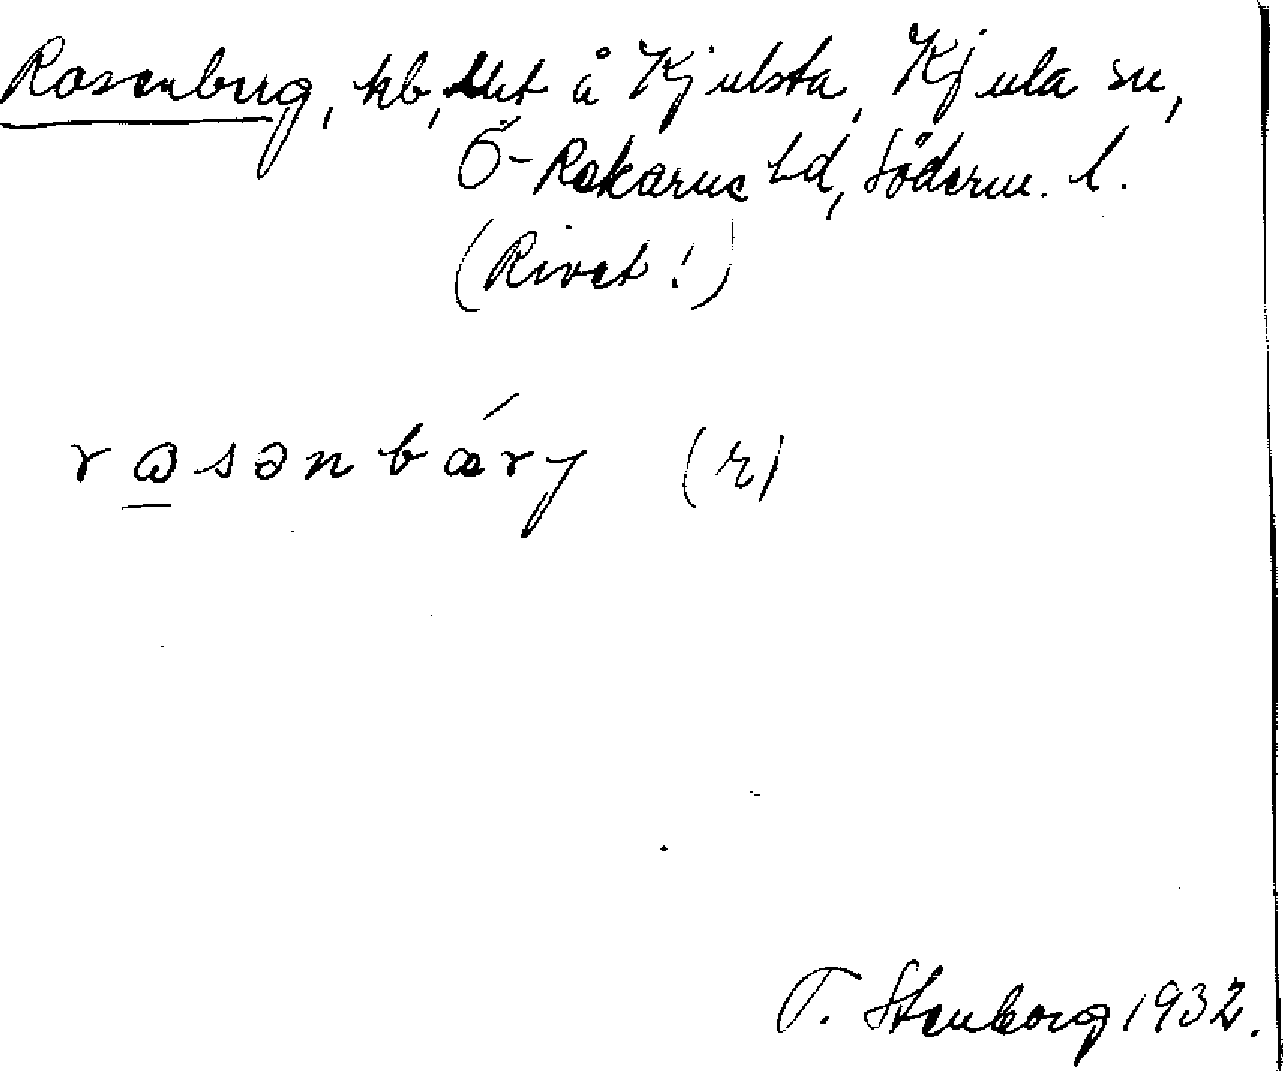 Rosenberg, hb, lht å Kjulsta, Kjula sn,
Ö-Rekarne hd, Söderm. l.
(Rivet!)
rɷsənbǽrj (r)
T. Stenborg 1932.